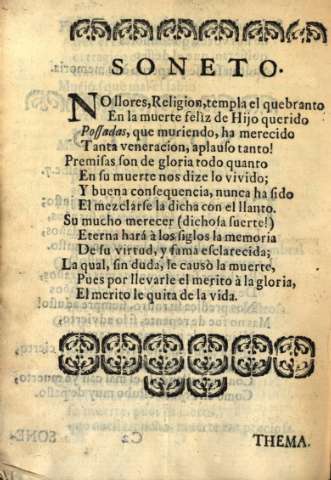 SONETO.
NO llores, Religion, templa el quebranto
En la muerte feliz de Hijo querido
Possadas, que muriendo, ha merecido
Tanta veneracion, aplauso tanto!
Premisas son de gloria todo quanto
En su muerte nos dize lo vivido;
Y buena consequencia, nunca ha sido
El mezclarse la dicha con el llanto.
Su mucho merecer (dichosa suerte!)
Eterna harà à los siglos la memoria
De su virtud, y fama esclarecida;
La qual, sin duda, le causò la muerte,
Pues por llevarle el merito à la gloria,
El merito le quita de la vida.
THEMA.